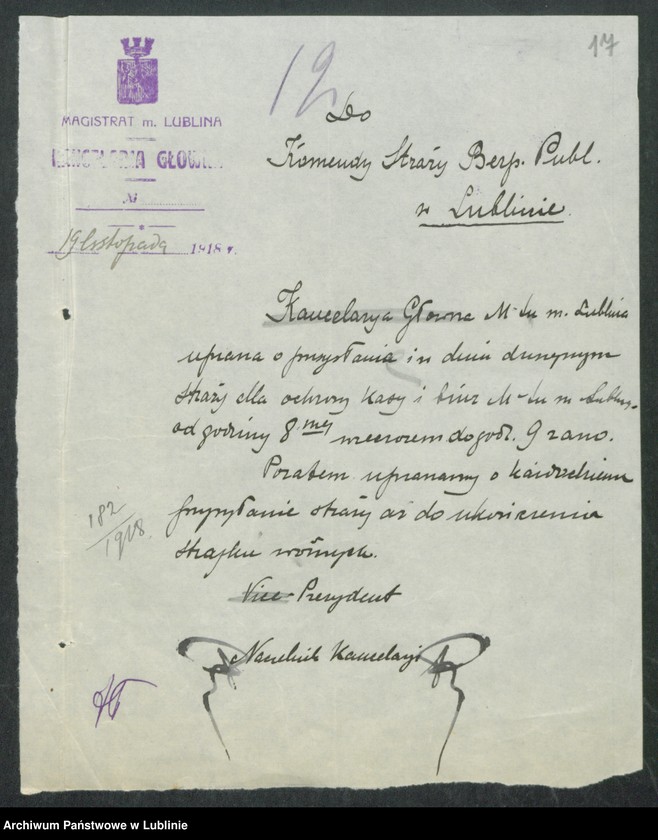 17
12
MAGISTRAT m. LUBLINA
KANCELARIA GŁOWNA
№
19 listopada 1918 r.
Do
Komendy Straży Bezp. Publ.
w Lublinie.
Kancelarya Główna M-tu m. Lublina
uprasza o przysłanie w dniu dzisiejszym
straży dla ochrony Kasy i biur M-tu m. Lublina
od godziny 8 mej wieczorem do godz. 9 rano.
Pozatem upraszamy o każdodzienne
przysyłanie straży aż do ukończenia
strajku woźnych.
182/1918.
Vice-Prezydent
Naczelnik Kancelaryi
Archiwum Państwowe w Lublinie